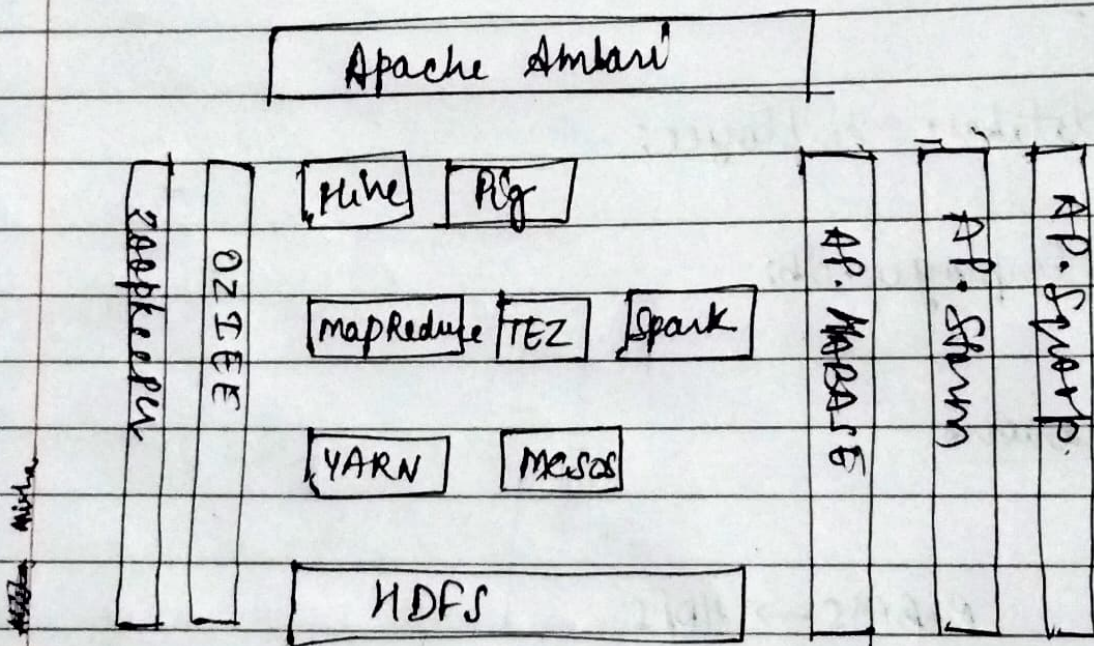 Apache Ambari
Zookeeper
OZIEE
Hive
Pig
MapReduce
TEZ
Spark
YARN
Mesos
HDFS
AP. HBASE
AP. Storm
AP. Sqoop